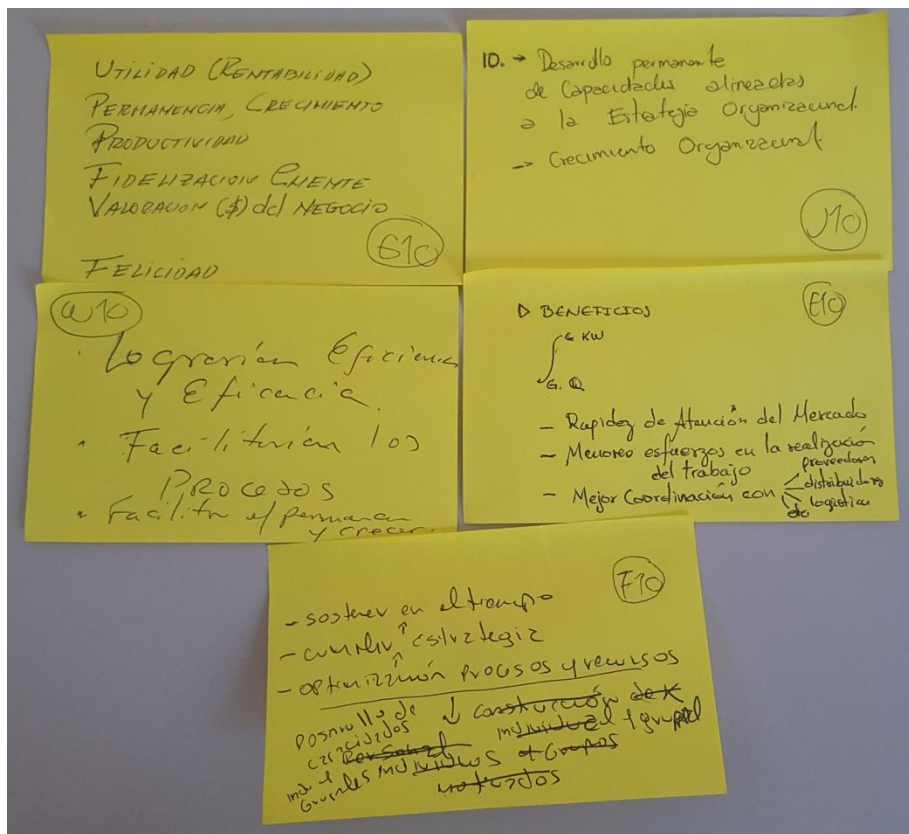 UTILIDAD (RENTABILIDAD)
PERMANENCIA, CRECIMIENTO
PRODUCTIVIDAD
FIDELIZACION CLIENTE
VALORACION ($) del NEGOCIO
FELICIDAD
G10
10. → Desarrollo permanente
de Capacidades alineadas
a la Estrategia Organizacional.
→ Crecimiento Organizacional
J10
a10
· Lograrían Eficiencia
y Eficacia.
· Facilitarían los
Procesos
· Facilita el permanecer
y crecer.
E10
▷ BENEFICIOS
G KW
G. Q
- Rapidez de Atención del Mercado
- Menores esfuerzos en la realización
del trabajo
- Mejor Coordinación con
proveedores
distribuidores
logística
etc
F10
- sostener en el tiempo
- cumplir ↑ estrategia
- optimización procesos y recursos
↓ construcción de K
Desarrollo de
capacidades
individual y grupal
Personal
individuos + Grupos
motivados